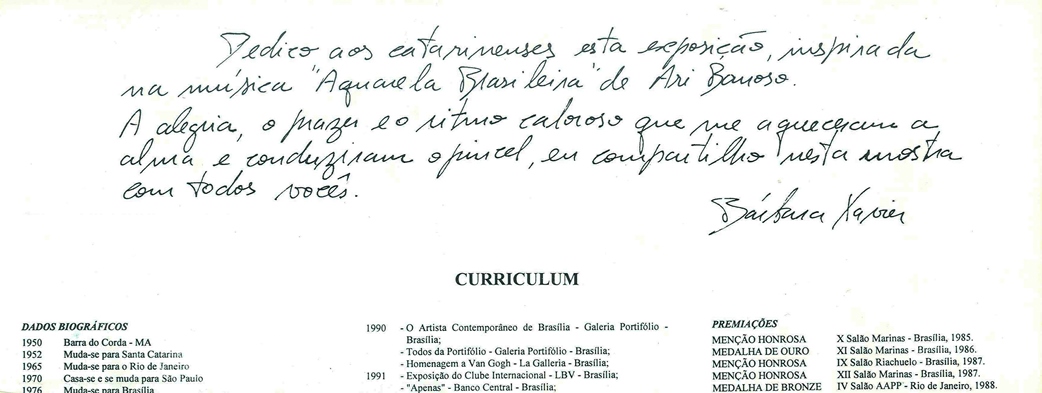 Dedico aos catarinenses esta exposição, inspirada
na música "Aquarela Brasileira" de Ari Barroso.
A alegria, o prazer e o ritmo caloroso que me aqueceram a
alma e conduziram o pincel, eu compartilho nesta mostra
com todos vocês.
Bárbara Xavier
CURRICULUM
DADOS BIOGRÁFICOS
1950 Barra do Corda - MA
1952 Muda-se para Santa Catarina
1965 Muda-se para o Rio de Janeiro
1970 Casa-se e se muda para São Paulo
1976 Muda-se para Brasília
1990 - O Artista Contemporâneo de Brasília - Galeria Portifólio -
Brasília;
- Todos da Portifólio - Galeria Portifólio - Brasília;
- Homenagem a Van Gogh - La Galleria - Brasília;
1991 - Exposição do Clube Internacional - LBV - Brasília;
- "Apenas" - Banco Central - Brasília;
PREMIAÇÕES
MENÇÃO HONROSA X Salão Marinas - Brasília, 1985.
MEDALHA DE OURO XI Salão Marinas - Brasília, 1986.
MENÇÃO HONROSA IX Salão Riachuelo - Brasília, 1987.
MENÇÃO HONROSA XII Salão Marinas - Brasília, 1987.
MEDALHA DE BRONZE IV Salão AAPP - Rio de Janeiro, 1988.